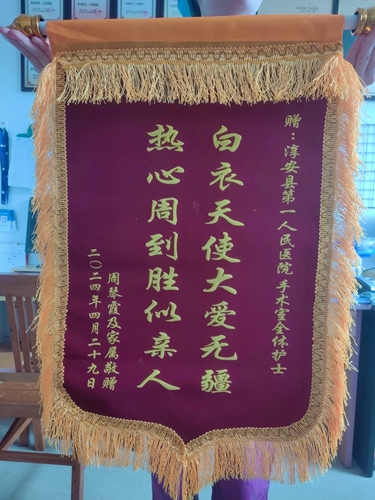 赠：淳安县第一人民医院 手术室全体护士
白衣天使大爱无疆
热心周到胜似亲人
周琴霞及家属敬赠
二〇二四年四月二十九日